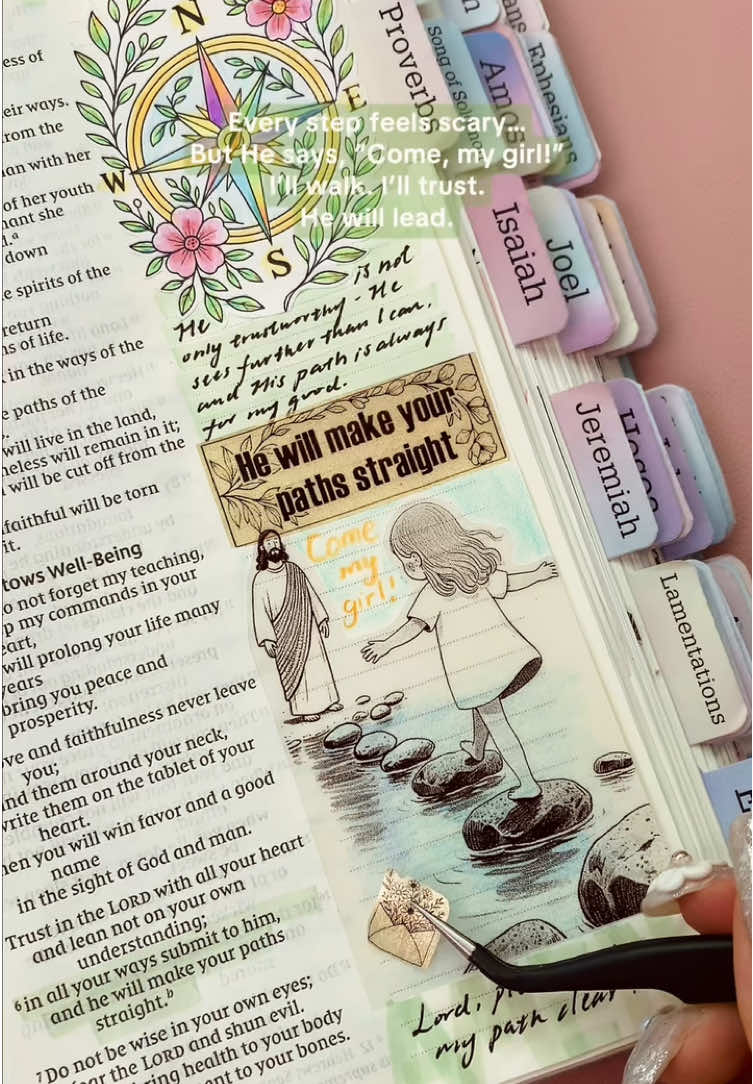 Every step feels scary...
But He says, “Come, my girl!”
I’ll walk. I’ll trust.
He will lead.
N
E
W
S
ess of
eir ways.
rom the
an with her
of her youth
nant she
down
e spirits of the
return
s of life.
in the ways of the
e paths of the
will live in the land,
eless will remain in it;
will be cut off from the
faithful will be torn
it.
tows Well-Being
o not forget my teaching,
p my commands in your
eart,
will prolong your life many
years
bring you peace and
prosperity.
ve and faithfulness never leave
you;
nd them around your neck,
write them on the tablet of your
heart.
hen you will win favor and a good
name
in the sight of God and man.
Trust in the LORD with all your heart
and lean not on your own
understanding;
6 in all your ways submit to him,
and he will make your paths
straight.b
7 Do not be wise in your own eyes;
fear the LORD and shun evil.
ring health to your body
ent to your bones.
He is not
only trustworthy - He
sees further than I can,
and His path is always
for my good.
He will make your
paths straight
Come
my
girl!
Lord,
my path clear
Proverbs
Song of
Amos
Ephesians
Isaiah
Joel
Jeremiah
Lamentations